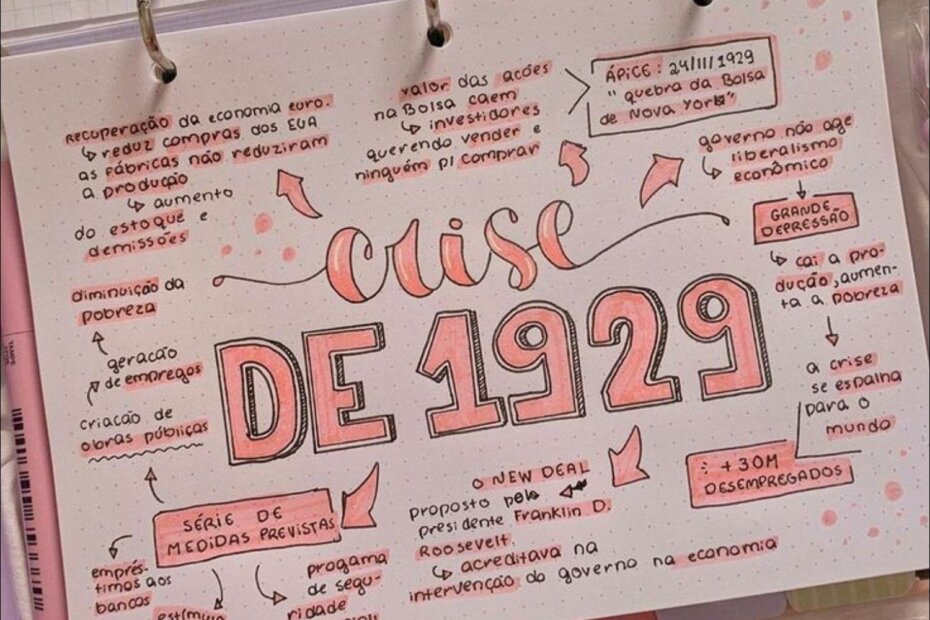 recuperação da economia euro.
↳ reduz compras dos EUA
as fábricas não reduziram
a produção
↳ aumento
do estoque e
demissões
valor das acões
na Bolsa caem
↳ investidores
querendo vender e
ninguém p/ comprar
ÁPICE: 24/11/1929
"quebra da Bolsa
de Nova York"
governo não age
↳ liberalismo
econômico
GRANDE
DEPRESSÃO
↳ cai a pro-
dução, aumen-
ta a pobreza
a crise
se espalha
para o
mundo
: +30M
DESEMPREGADOS
crise
DE 1929
diminuição da
pobreza
geracão
de empregos
criacão de
obras públicas
SÉRIE DE
MEDIDAS PREVISTAS
emprés-
timos aos
bancos
estímulo
progama
de segu-
ridade
O NEW DEAL
proposto pelo
presidente Franklin D.
Roosevelt.
↳ acreditava na
intervenção do governo na economia